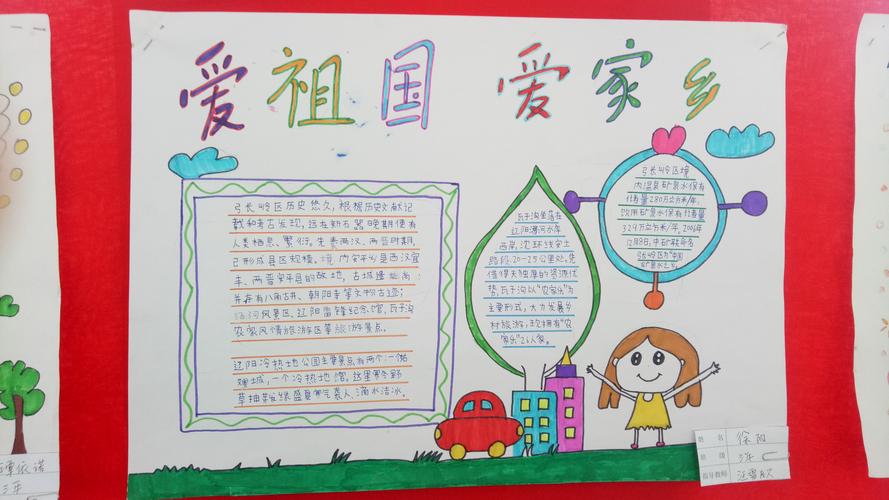 爱祖国 爱家乡
弓长岭区历史悠久,根据历史文献记
载和考古发现,远在新石器晚期便有
人类栖息、繁衍。生 两汉、两晋时期,
已形成县区规模。境内安平乡是西汉宜
丰、两晋安平县的故地,古城遗址尚
并存有八角古井、朝阳寺等文物古迹;
汤河风景区、辽阳雷锋纪念馆、瓦子沟
农家风情旅游区等旅游景点。
辽阳冷热地公园主要景点有两个:一
一个冷热地馆,这里寒冬野
草抽芽 绿盛夏寒气袭人、滴水洁冰。
瓦子沟坐落在
辽阳 河东岸
西岸,沈环线安土
路段20-25公里处,凭
借得天独厚的资源优
势,瓦子沟以“农家乐”为
主要形式,大力发展乡
村旅游,现拥有“农
家乐”26人家。
弓长岭区境
内温泉矿泉水保有
储量280万立方米/年,
饮用矿泉水保有储量
329万立方米/年,2006年
12月8日,中矿联命名
弓长岭区为“中国
矿泉水之乡
姓名 徐阳
班级 三年二
指导教师 汪雪
三年